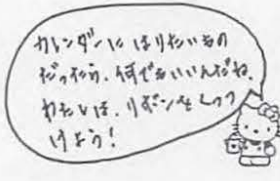 カレンダーに はりたいもの
だったら、何でもいいんだね。
わたしは、リボンをくっつ
けよう!